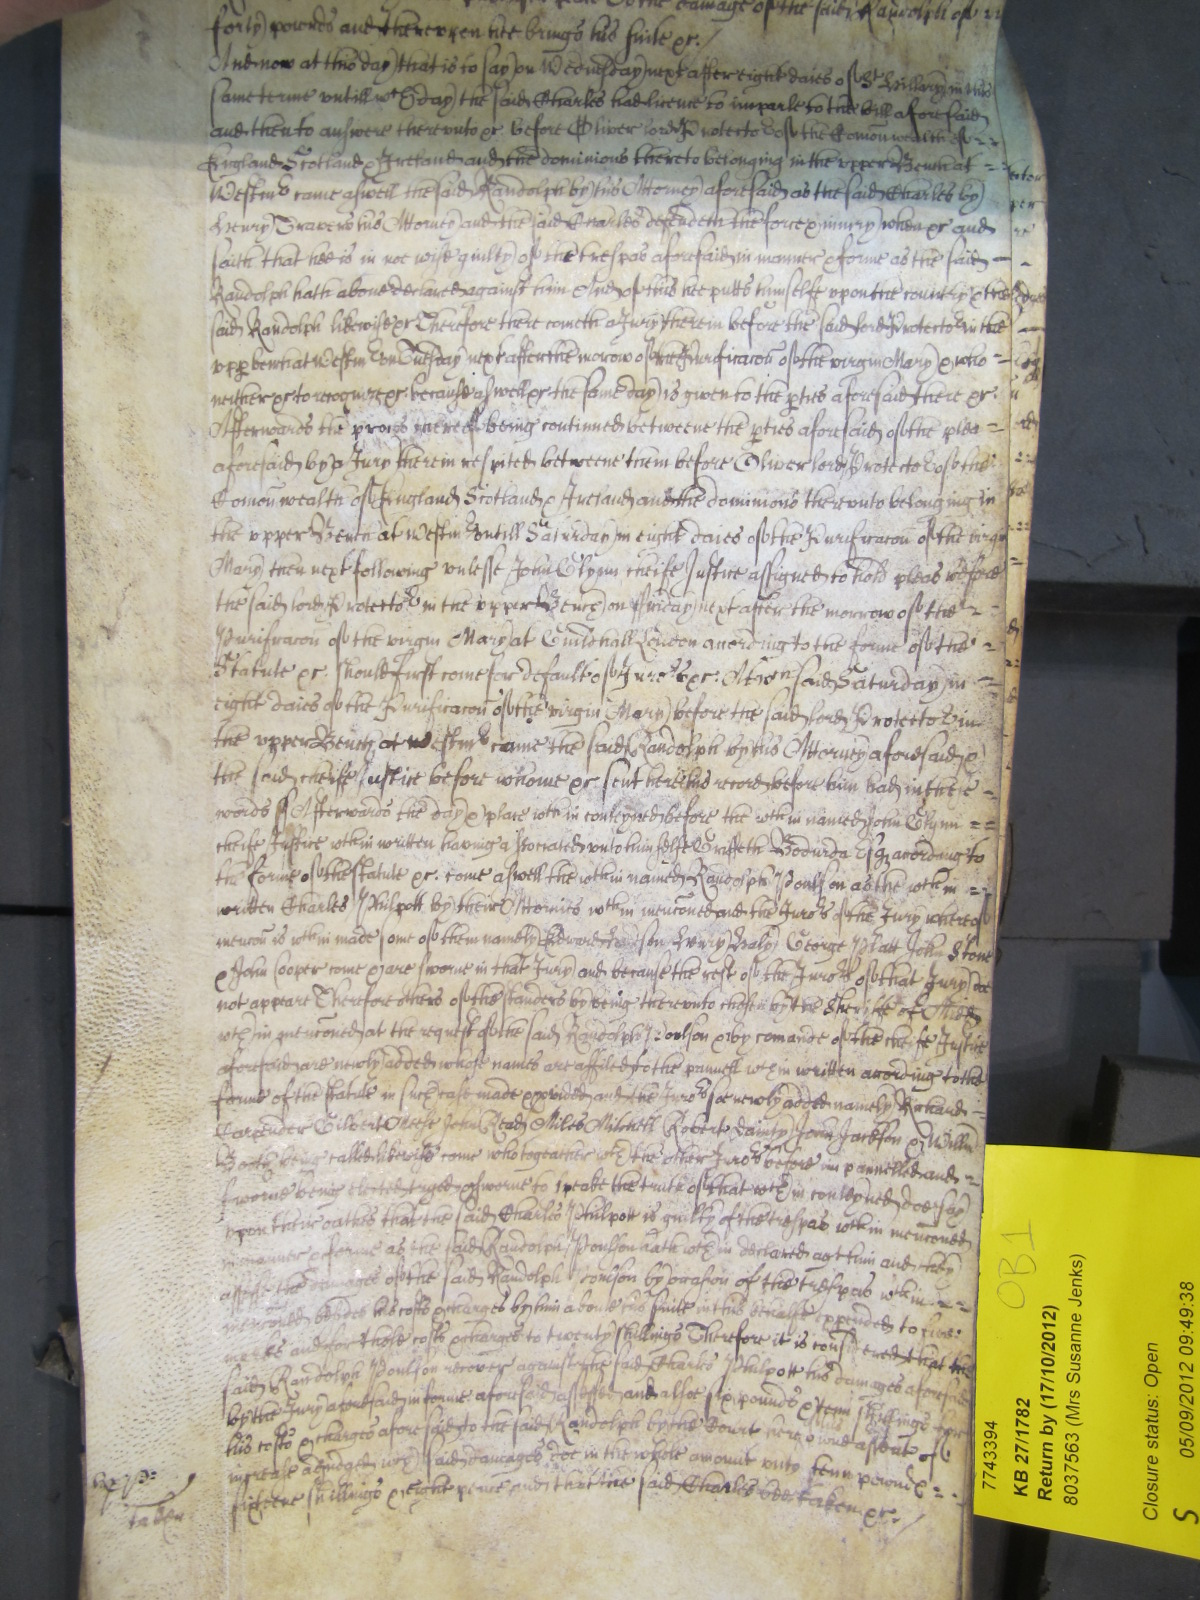 to the damage of the said Randolph of
forty pounds and thereupon hee brings his suite &c./
And now at this day that is to say on Wednesday next after eight daies of St Hillary in this
same terme untill wch day the said Charles had licence to imparle to the bill aforesaid
and then to answere thereunto &c before Oliver lord Protector of the Comonwealth of
England Scotland & Ireland and the dominions thereto belonging in the upper Bench at
Westmr came aswell the said Randolph by his Attorney aforesaid as the said Charles by
Henry Travers his Attorney and the said Charles defendeth the force & iniury when &c and
saith that hee is in noe wise guilty of the trespas aforesaid in manner & forme as the said
Randolph hath above declared against him And of this hee putts himselfe upon the country & the
said Randolph likewise &c Therefore there cometh a Jury therein before the said lord Protector in the
upp bench at Westmr on Tuesday next after the morow of the Purificacon of the virgin Mary & who
neither &c to recognize &c because aswell &c the same day is given to the pties aforesaid there &c.
Afterwards the proces thereof being continued betweene the pties aforesaid of the plea
aforesaid by a Jury therein respited betweene them before Oliver lord Protector of the
Comonwealth of England Scotland & Ireland and the dominions thereunto belonging in
the upper Bench at Westmr untill Saturday in eight daies of the Purificacon of the virgin
Mary then next following unlesse John Glynn cheife Justice assigned to hold pleas before
the said lord Protector in the upper Bench on Friday next after the morrow of the
Purificacon of the virgin Mary at Guildhall London according to the forme of the
Statute &c. should first come for default of Jurors &c. At wch said Saturday in
eight daies of the Purificacon of the virgin Mary before the said lord Protector in
the upper Bench at Westmr came the said Randolph by his Attorney aforesaid &
the said cheife Justice before whome &c sent here his record before him had in these
words ss Afterwards the day & place wthin conteyned before the wthin named John Glynn
cheife Justice wthin written having associated unto himselfe Griffeth Bodurda Esq according to
the forme of the statute &c. come aswell the wthin named Randolph Poulson as the wthin
written Charles Philpott by their Attornies wthin menconed and the Jurors of the Jury whereof
mencon is wthin made some of them namely Edward Henry George Platt John Stone
& John Cooper come & are sworne in that Jury and because the rest of the Jurors of that Jury doe
not appeare Therefore others of the standers by being thereunto chosen by the Sheriffe of Midd
wthin menconed at the request of the said Randolph Poulson & by comande of the cheife Justice
aforesaid are newly added whose names are affiled to the pannell wthin written according to the
forme of the statute in such case made & provided and the Jurors soe newly added namely Richard
Carpender Gilbert John Read Miles Mitchell Robert Dainty John Jackson & Willm
being called likewise come who togeather wth the other Jurors before impannelled and
sworne being elected tryed & sworne to speake the truth of that wthin conteyned doe say
upon their oathes that the said Charles Philpott is guilty of the trespas wthin menconed
in manner & forme as the said Randolph Poulson hath wthin declared agt him and they
assesse the damages of the said Randolph Poulson by ocasion of the trespas wthin
menconed besides his costs & charges by him about his suite in this behalfe expended to five
markes and for those costs & charges to twenty shillings Therefore it is considered that the
said Randolph Poulson recover against the said Charles Philpott his damages aforesaid
by the Jury aforesaid in forme aforesaid assessed and alsoe six pounds & tenn shillings for
his costs & charges aforesaid to the said Randolph by the Court here of
increase adjudged wch said damages doe in the whole amount unto tenn pounds
sixteene shillings & eight pence and that the said Charles bee taken &c./
taken
7743394
OB1
KB 27/1782
Return by (17/10/2012)
8037563 (Mrs Susanne Jenks)
Closure status: Open
S 05/09/2012 09:49:38